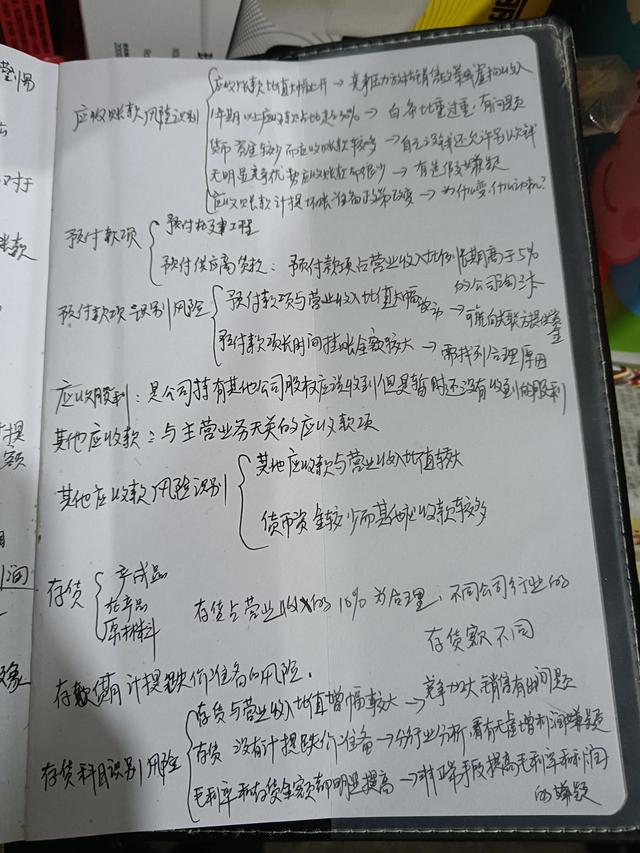 应收账款风险识别
应收账款比值大幅上升 → 竞争压力 放松销售政策或虚构收入
1年期以上应收款占比是30% → 白条比重过重,有问题
货币资金较少而应收账款较多 → 自己没钱还允许别人欠钱
无明显竞争优势应收账款却很少 → 有造假嫌疑
应收账款计提坏账准备政策改变 → 为什么变,什么时候?
预付款项
预付在建工程
预付供应商货款:预付款项占营业收入比例长期高于5%
的公司淘汰
预付款项识别风险
预付款项与营业收入比值大幅波动 → 可能向关联方提供资金
预付款项长时间挂账金额较大 → 需找到合理原因
应收股利:是公司持有其他公司股权应该收到但是暂时还没有收到的股利
其他应收款:与主营业务无关的应收款项
其他应收款风险识别
其他应收款与营业收入比值较大
货币资金较少而其他应收款较多
存货
产成品
在产品
原材料
存货占营业收入的10%为合理,不同公司行业的
存货额不同
计提跌价准备的风险.
存货科目识别风险
存货与营业收入比值增幅较大 → 竞争力欠,销售有问题
存货没有计提跌价准备 → 分行业分析,看有无虚增利润嫌疑
毛利率和存货金额都明显提高 → 非正常手段提高毛利率和利润
的嫌疑